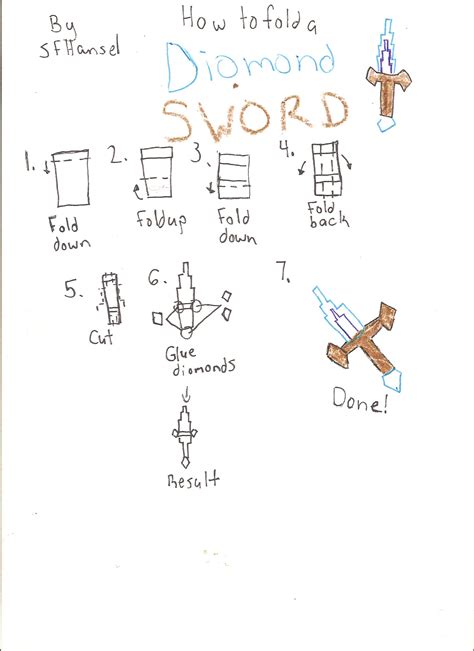 By
SFHansel
How to fold a
Diomond
SWORD
1.
Fold
down
2.
Foldup
3.
Fold
down
4.
Fold
back
5.
Cut
6.
Glue
diomonds
Result
7.
Done!